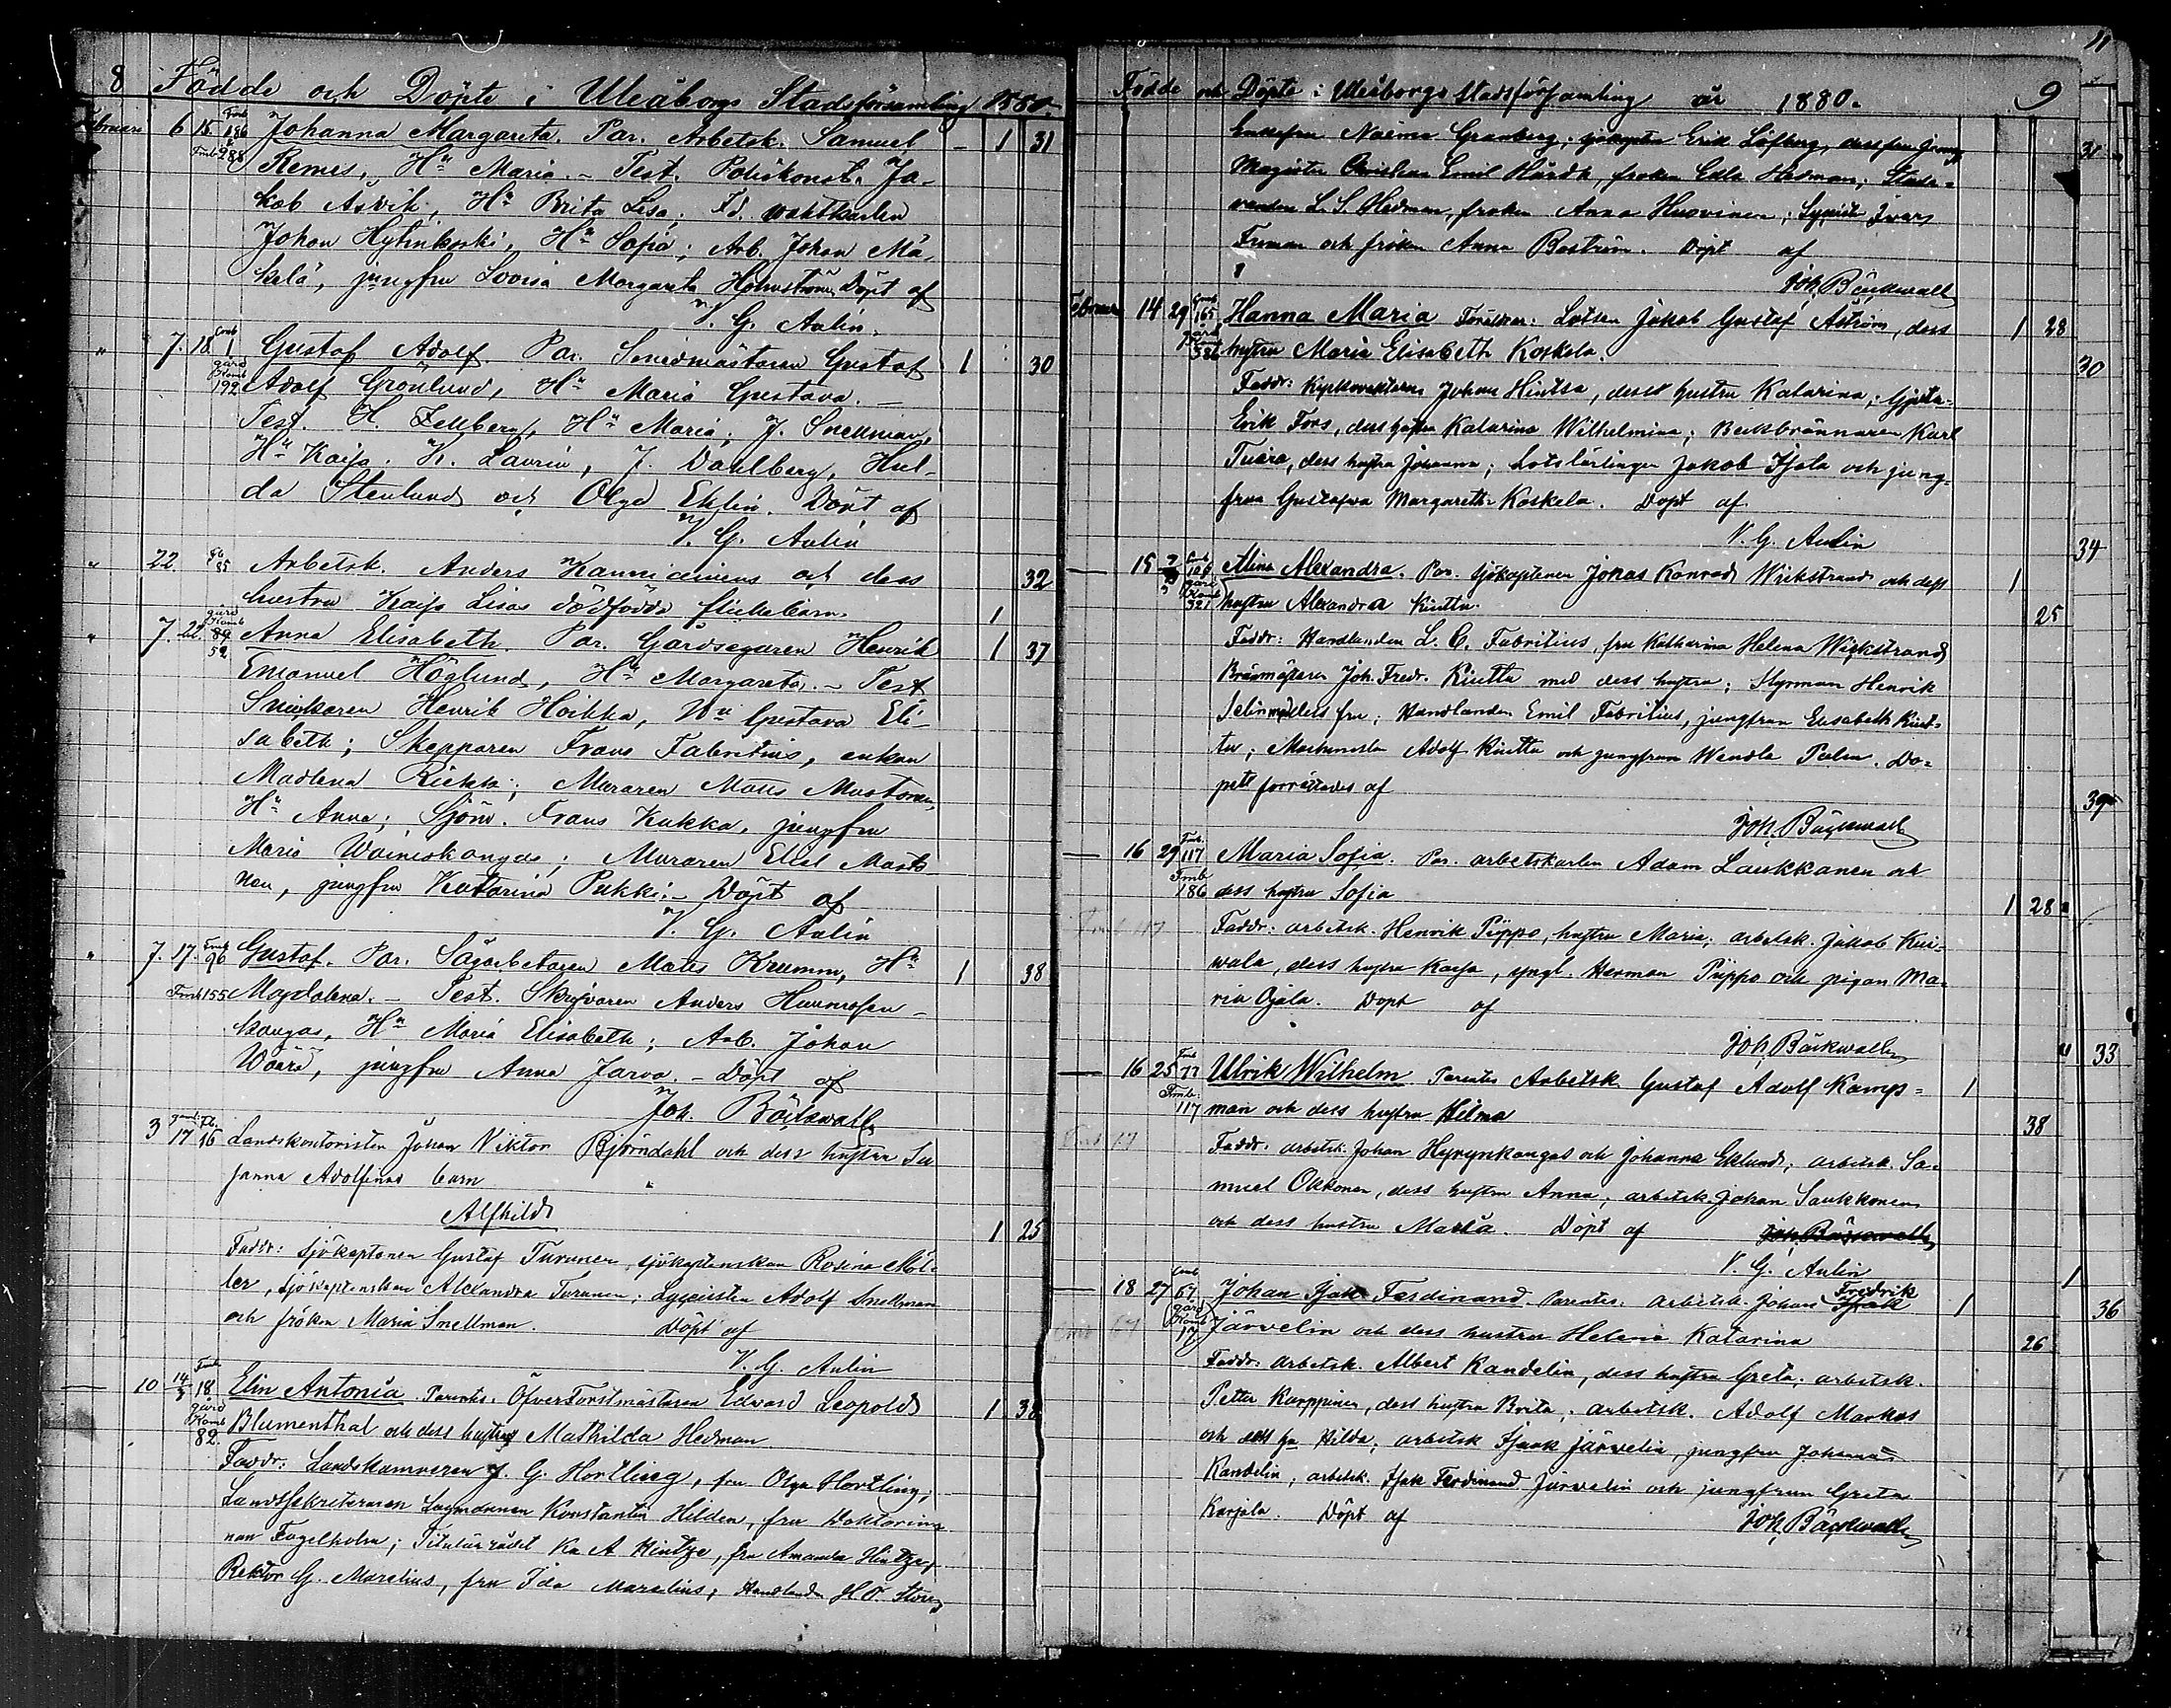 8 Födde och Döpte i Uleåborgs Stadsförsamling 1880.
Februari 6 15 186 Johanna Margareta. Par. Arbetsk. Samuel - 1 31
Fmb 288 Remes, Hu Maria. - Test. Poliskonst. Ja-
kob Asvik, Hu Brita Lisa; Fd. vaktkarlen
Johan , Hu Sofia; Arb. Johan Mä-
kelä, jungfru Lovisa Margareta Holmström. Döpt af
V. G. Aulin.
" 7. 18 1 Gustaf Adolf Par. Smidmästaren Gustaf 1 30
gård Komb 192 Adolf Grönlund, Hu Maria Gustava. -
Test. H. Zellberg, Hu Maria; J. Snellman,
Hu Kajsa; K. Laurin, J. Dahlberg, Hul-
da Stenlund och Olga Eklin. Döpt af
V. G. Aulin
" 22. 85 Arbetsk. Anders Kanniainens och dess 32
hustru Kajsa Lisas dödfödda flickebarn. 1
" 7. 22. gård Komb 52 Anna Elisabeth. Par. Gårdsegaren Henrik 1 37
Emanuel Höglund, Hu Margareta. - Test
Snickaren Henrik Hoikka, Hu Gustava Eli-
sabeth; Skepparen Frans Fabritius, enkan
Madlena Riekki; Muraren Matts Mustonen,
Hu Anna; Sjöm. Frans Kukka, jungfru
Maria Wäiniskangas; Muraren Eliel Musto-
nen, jungfru Katarina Pukki. - Döpt af
V. G. Aulin
" 7. 17. Fmb 96 Gustaf. Par. Sågarbetaren Matts Krumm, Hu 1 38
Fmb 155 Magdalena. - Test. Skrifvaren Anders
kangas, Hu Maria Elisabeth; Arb. Johan
Wäärä, jungfru Anna Jarva. - Döpt af
Joh. Bäckwall
3 17 16 Landskontoristen Johan Viktor Björndahl och dess hustru Su
sanna Adolfinas barn
Alfhild 1 25
Faddr: Sjökaptenen Gustaf Turunen, sjökaptenskan Rosina Möl-
ler, Sjökaptenskan Alexandra Turunen; Lyceisten Adolf Snellman
och fröken Maria Snellman. Döpt af
V. G. Aulin
10 14/3 18. Elin Antonia. Parentes. Öfverforstmästaren Edvard Leopold 1 38
gård Komb 82. Blumenthal och dess hustru Mathilda Hedman
Faddr: Landskamreren J. G. Hortling, fru Olga Hortling;
Landssekreteraren Lagmannen Konstantin Hilden, fru Doktorin-
nan Fagelholm; Titulärrådet A Hintze, fru Amanda Hintze;
Rektor G. Marelius, fru Ida Marelius; Handlanden H. F.
Födde och Döpte i Uleåborgs Stadsförsamling år 1880. 9
Enkefru Naëma Granberg; sjökapten Erik Löfberg, dess fru
Magister Christian Emil Hårdh, fröken Edla Hedman;
L. S. Hedman, fröken Anna Huovinen; Lyceist Ivar
Fruman och fröken Anna Boström. Döpt af
Joh. Bäckwall
Februari 14 29 165 Hanna Maria Föräldrar: Lotsen Jakob Gustaf Åström, dess 1 28
gård Komb hustru Maria Elisabeth Koskela.
Faddr: Johan Hintsa, dess hustru Katarina;
Erik Fors, dess hustru Katarina Wilhelmina; Beckbrännaren Karl
Tuira, dess hustru Johanna; Lotslärlingen Jakob Ojala och jung-
frun Gustafva Margaretha Koskela. Döpt af
V. G. Aulin
15 Mina Alexandra. Par. Sjökaptenen Jonas Konrad Wickstrand och dess 1
gård Komb 321 hustru Alexandra Kinttu. 25
Faddr: Handlanden L. C. Fabritius, fru Katharina Helena Wickstrand
Joh. Fredr. Kinttu med dess hustru; Styrman Henrik
Selin med dess fru; Handlanden Emil Fabritius, jungfrun Elisabeth Kint-
tu; Adolf Kinttu och jungfrun Wendla Palen. Do-
pet förrättades af
Joh. Bäckwall
16 29 Fmb. 117 Maria Sofia. Par. arbetskarlen Adam Laukkanen och
Fmb 186 dess hustru Sofia 1 28
Faddr: arbetsk. Henrik Piippo, hustru Maria; arbetsk. Jakob Kui-
wala, dess hustru Kajsa, yngl. Herman Piippo och pigan Ma-
ria Ojala. Döpt af
Joh. Bäckwall
16 25 77 Ulrik Wilhelm Parentes Arbetsk Gustaf Adolf Kamps- 1
Fmb. 117 man och dess hustru Hilma 38
Faddr. arbetsk. Johan Hyrynkangas och Johanna Eklund; arbetsk. Sa-
muel Okkonen, dess hustru Anna; arbetsk. Johan Saukkonen
och dess hustru Maria. Döpt af Joh. Bäckwall
V. G. Aulin
18 27 67 Johan Isak Ferdinand. Parentes. arbetsk. Johan Isak Fredrik 1
gård Komb 17 Järvelin och dess hustru Helena Katarina 26
Faddr. arbetsk. Albert Kandelin, dess hustru Greta; arbetsk.
Petter Karppinen, dess hustru Brita; arbetsk. Adolf Markus
och dess hu Hilda; arbetsk Isaak Järvelin, jungfru Johanna
Kandelin; arbetsk. Isak Ferdinand Järvelin och jungfrun Greta
Karjala. Döpt af Joh. Bäckwall
11
30
34
39
33
1
36